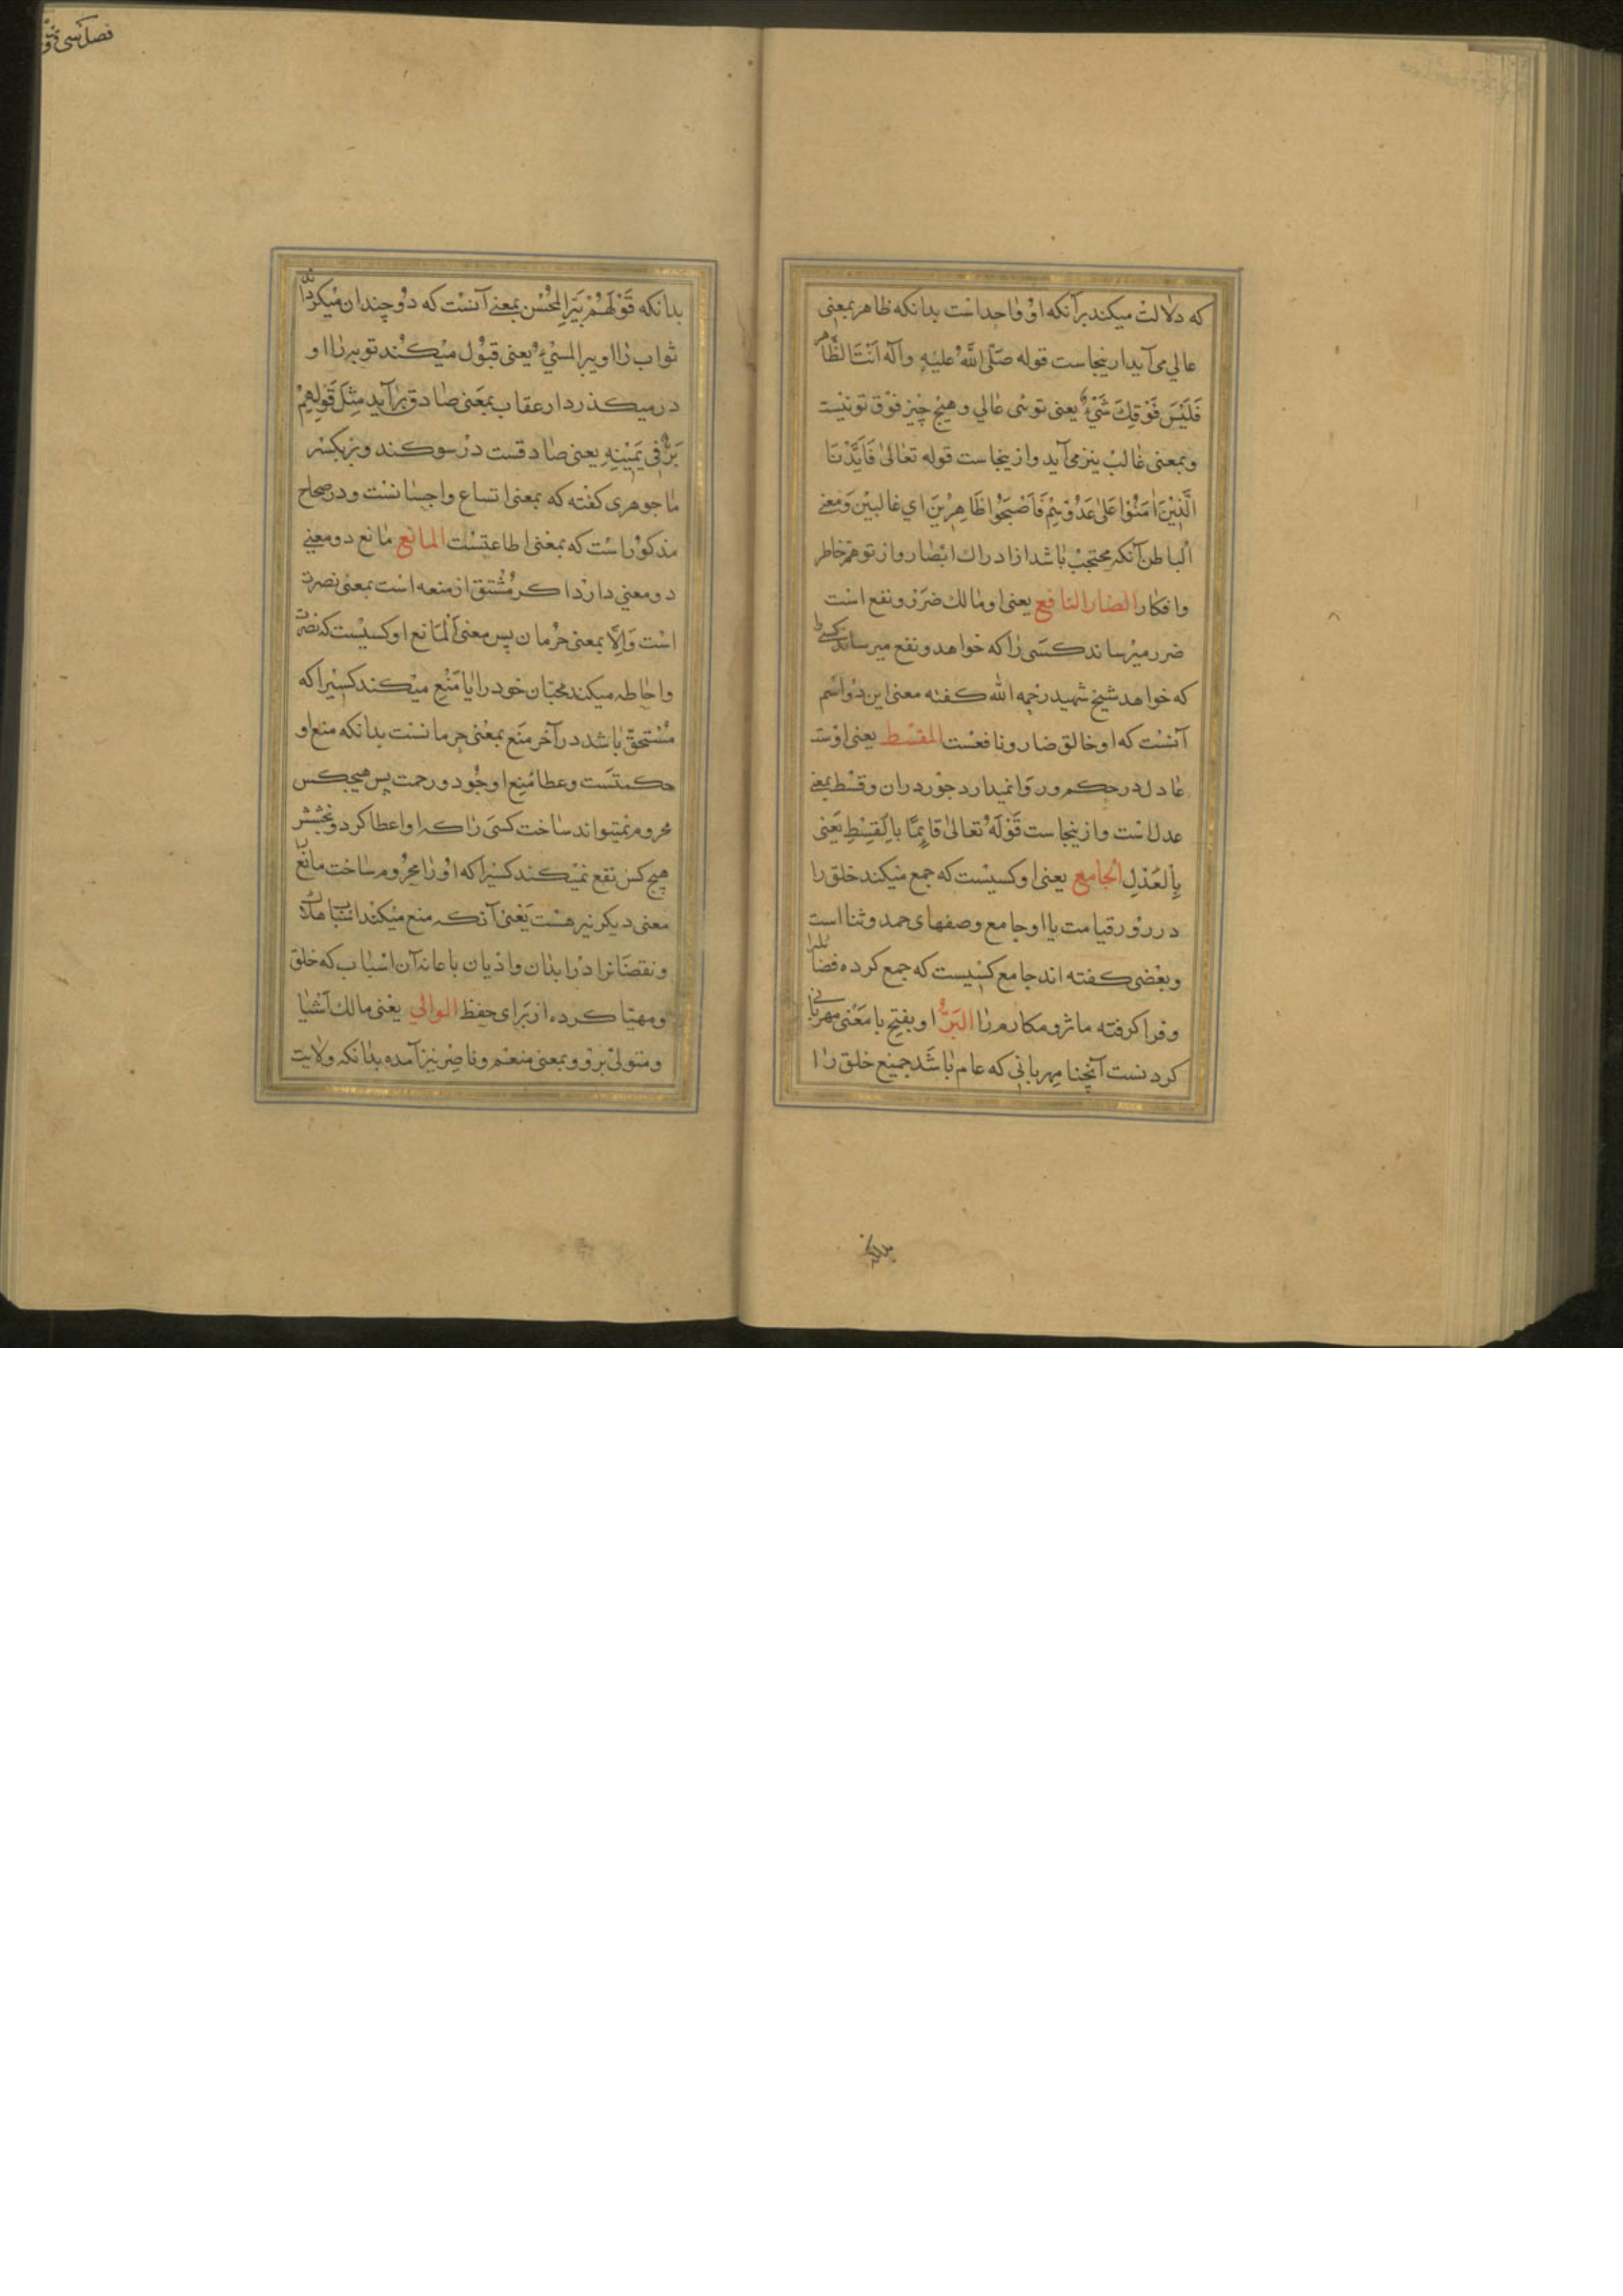 که دلالت میکند برآنکه او واحداست بدانکه ظاهر بمعنی
عالی می آید ازینجاست قوله صَلّی اللهُ علیه وآله اَنْتَ الظَّاهر
فَلَیْسَ فَوْقِكَ شَیْءٌ یعنی توئی عالی و هیچ چیز فوق تو نیست
وبمعنی غالب نیز می آید وازینجاست قوله تعٰالیٰ فَاَیَّدْنَا
الَّذِیْنَ اٰمَنُوْا عَلیٰ عَدُوِّهِمْ فَاَصْبَحُوا ظَاهِرِیْنَ ای غالبیْن وَمعنی
الباطن آنکه محتجبْ باشد از ادراك ابصار واز توهّم خاطر
وافکار الضار النافع یعنی او مالك ضَرَر ونفع است
ضرر میرساند کسَی را که خواهد ونفع میرساند کسی را
که خواهد شیخ شهید رحمه الله کفته معنی این دو اسم
آنست که او خالق ضار ونافعست المقسط یعنی اوست
عادل در حکم وروا نمیدارد جوْر در ان وقسْط بمعنی
عدل است وازینجاست قَوْلَهُ تعَالیٰ قَایِمًا بِالْقِسْطِ یَعْنی
بِالْعَدْلِ الجامع یعنی او کسیست که جمع میکند خلق را
در روْز قیامت یا او جامع وصفهای حمد وثنا است
وبعْضی کفته اند جامع کسیست که جمع کرده فضایلرا
وفرا کرفته ماثر ومکارم را البَرُّ او بفتح با مَعْنی مهربانی
کردنست آنچنا مهربانی که عام باشَد جمیع خلق را
بدانکه
بدانکه قَوْلَهُمْ یَبَرُّ الْمُحْسِن بمعنی آنست که دوْ چندان میکرداند
ثواب را او ویبر المسیءُ یعنی قبوْل میکنْد توبه را او
درمیکذرد از عقاب بمعَنی صادق بر آید مِثلَ قَوْلِهِمْ
بَرٌّ فِی یَمِیْنِهِ یعنی صٰادقست درْ سوکند وبر بکسْر
ما جوهری کفْته که بمعنی اتساع واحسانسْت ودر صحاح
مذکوْر است که بمعْنی اطاعتسْت المانع مانع دومعنی
دومعنی دارد اکر مُشْتق از منعه است بمعْنی نصرت
است وَاِلّا بمعنی حرمان پس معنی اَلمَانع او کسیْست که نصرت
واحاطه میکند محبّان خود را یا منْع میْکند کسیرا که
مُسْتحقّ باشد در آخر منَع بمعْنی حِرمانسْت بدانکه منع او
حکمتسَت وعطا مُنِع او جُود ورحمت پس هیچکس
محروم نمیتواند ساخت کسی را که او اعطا کرد وبخشش
هیچ کس نفع نمیْکند کسیْرا که او را محروم ساخت مانع را
معنی دیکر نیز هست یَعْنی آنکه منع میکنْد اسْباب هلاك
ونقصانرا درْ ابدان وادیان باعانه آن اسباب که خلق
ومهیّا کرده از برَای حِفظ الوالی یغنی مالك اَشْیا
ومتولیْ بروْ وبمعنی منعم وناصر نیز آمده بدانکه ولایت